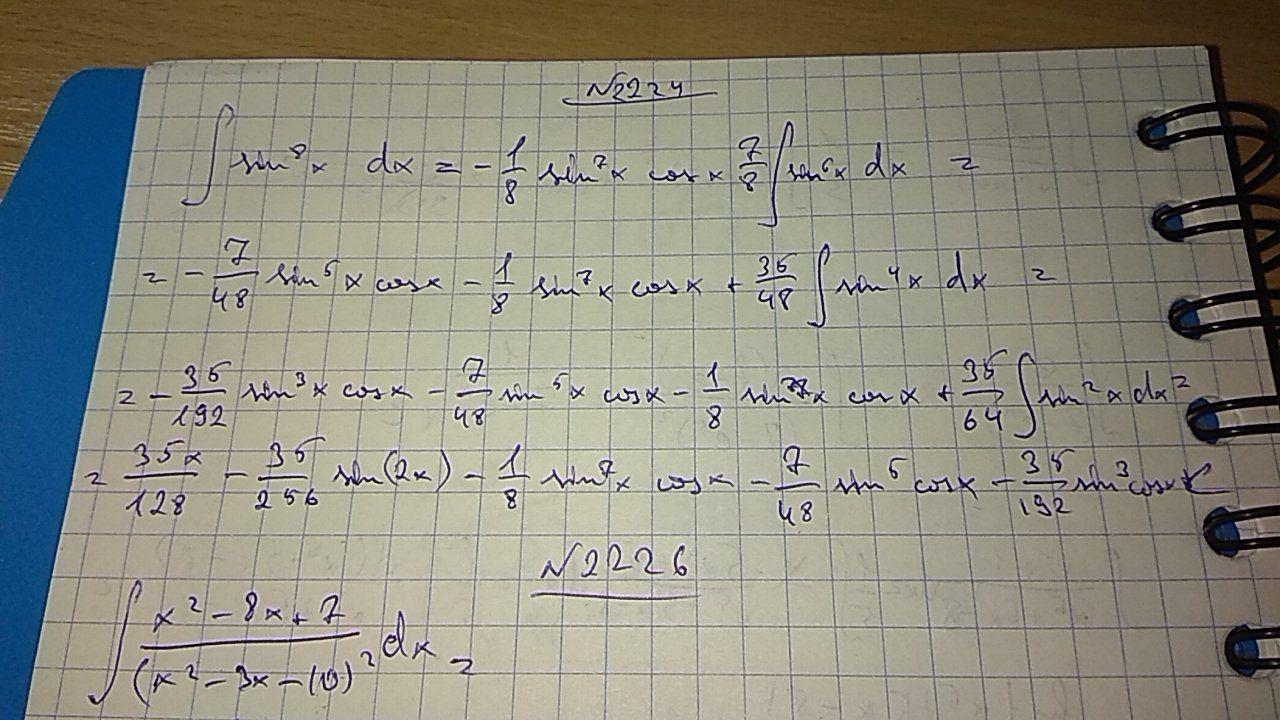 №2224
∫ sin⁸x dx = -1/8 sin⁷x cos x 7/8 ∫ sin⁶x dx =
= -7/48 sin⁵x cos x - 1/8 sin⁷x cos x + 35/48 ∫ sin⁴x dx =
= -35/192 sin³x cos x - 7/48 sin⁵x cos x - 1/8 sin⁷x cos x + 35/64 ∫ sin²x dx =
= 35x/128 - 35/256 sin(2x) - 1/8 sin⁷x cos x - 7/48 sin⁵ cos x - 35/192 sin³ cos x + C
№2226
∫ (x² - 8x + 7)/(x² - 3x - 10)² dx =